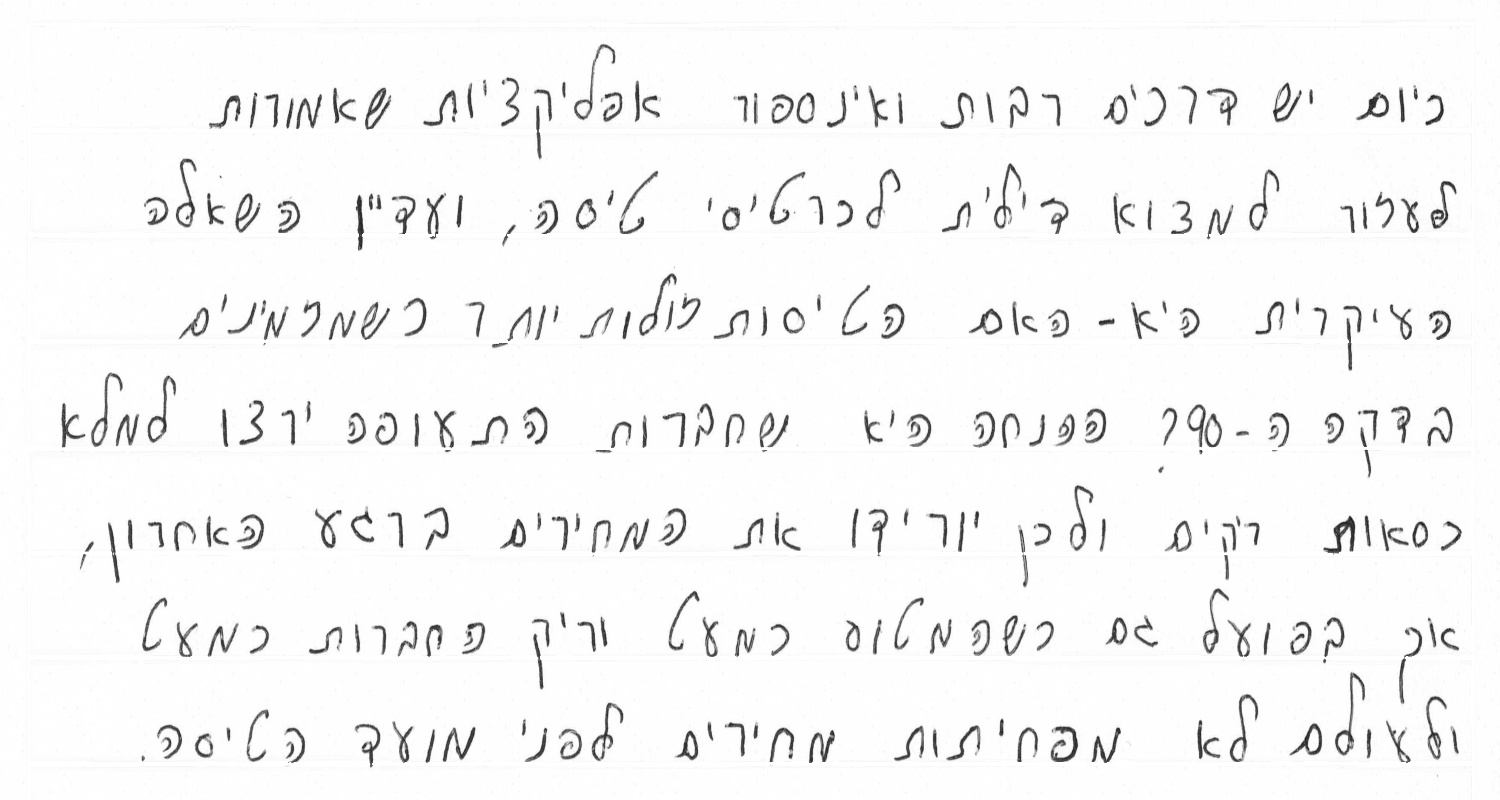 כיום יש דרכים רבות ואינספור אפליקציות שאמורות
לעזור למצוא דילית לכרטיסי טיסה, ועדיין השאלה
העיקרית היא - האם הטיסות זולות יותר כשמזמינים
בדקה ה-90? ההנחה היא שחברות התעופה ירצו למלא
כסאות רקים ולכן יורידו את המחירים ברגע האחרון,
אך בפועל גם כשהמטוס כמעט וריק החברות כמעט
ולעולם לא מפחיתות מחירים לפני מועד הטיסה.